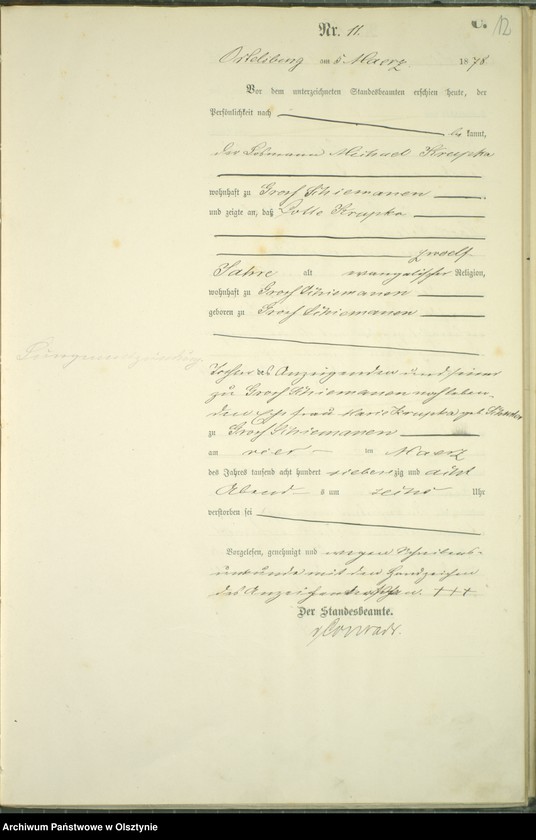 C. 12
Nr. 11.
Ortelsburg am 5 Maerz 1878
Vor dem unterzeichneten Standesbeamten erschien heute, der
Persönlichkeit nach
be kannt,
der Losmann Michael Krupka
wohnhaft zu Groß Schiemanen
und zeigte an, daß Lotte Krupka
zwoelf
Jahre alt evangelischer Religion,
wohnhaft zu Groß Schiemanen
geboren zu Groß Schiemanen
Lungenentzündung
Tochter des Anzeigenden und seiner
zu Groß Schiemanen noch leben-
den Ehefrau Marie Krupka geb.
zu Groß Schiemanen
am vier ten Maerz
des Jahres tausend acht hundert siebenzig und acht
Abends um sechs Uhr
verstorben sei
Vorgelesen, genehmigt und wegen Schreibens-
unkunde mit den Handzeichen
des Anzeigenden +++
Der Standesbeamte.
v Conradi.
Archiwum Państwowe w Olsztynie